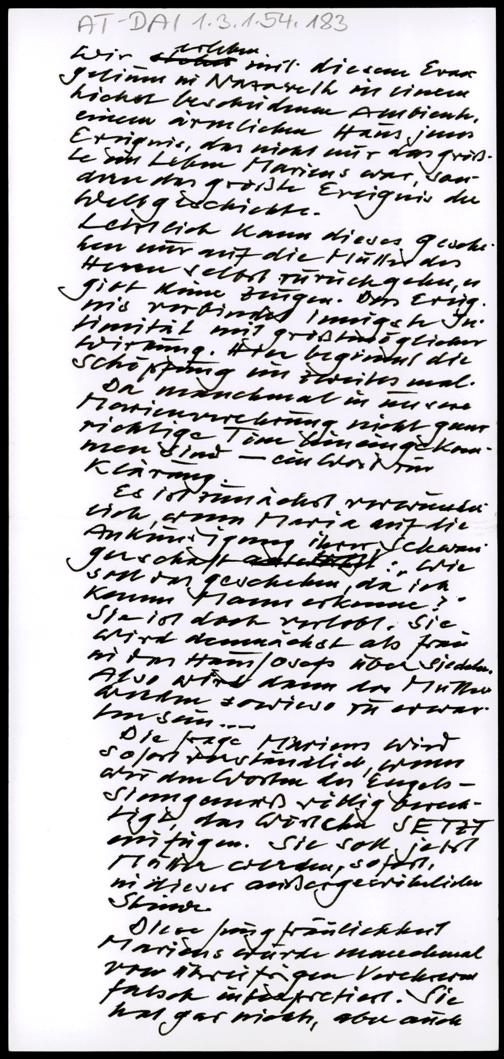 AT-DAI 1.3.1.54.183
Wir erleben mit diesem Evan
gelium in Nazareth in einem
höchst bescheidenen Ambiente,
einem ärmlichen Haus, jenes
Ereignis, das nicht nur das größ-
te im Leben Mariens war, son-
dern das größte Ereignis der
Weltgeschichte.
Letztlich kann dieses gesche-
hen nur auf die Mutter des
Herrn selbst zurückgehen, es
gibt keine Zeugen. Das Ereig-
nis verbindet innigste In-
timität mit größtmöglicher
Wirkung. Hier beginnt die
Schöpfung ein zweites mal.
Da manchmal in unsere
Marienverehrung nicht ganz
richtige Töne hineingekom-
men sind – ein Wort zur
Klärung
Es ist zunächst verwunder
lich, wenn Maria auf die
Ankündigung ihrer Schwan
gerschaft: „Wie
soll das geschehen, da ich
keinen Mann erkenne?"
Sie ist doch verlobt. Sie
wird demnächst als Frau
in das Haus Josefs übersiedeln.
Also wird dann das Mutter
werden sowieso zu erwar-
ten sein....
Die Frage Mariens wird
sofort verständlich, wenn
wir den Worten des Engels –
sinngemäß völlig berech-
tigt das Wörtchen JETZT
einfügen. Sie soll jetzt
Mutter werden, sofort,
in dieser außergewöhnlichen
Stunde.
Diese Jungfräulichkeit
Mariens wurde manchmal
von übereifrigen Verehrern
falsch interpretiert. Sie
hat gar nicht, aber auch